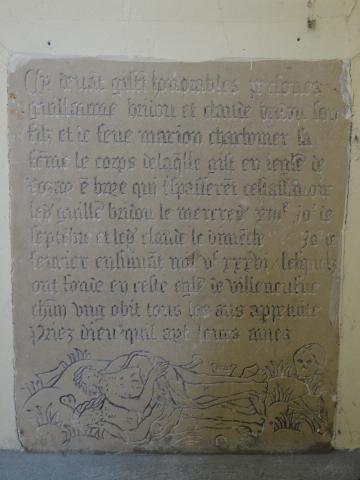 Cy devāt gist honorables persones
Guillaume bridou et claude bridou son
filz et ie feue marion charbonier sa
fēme le corps delaqlle gist en leglise de
rozay ē brie qui trespasserēt cestassavoir
led guille bridou le mercredy xiiiie jor de
septēbre et led claude le dimēche jor de
fevrier ensuivāt mil vc xxxvi lesquelz
ont fonde en ceste eglise de villeneufve
chūn ung obit tous les ans a ppetuite
Priez dieu quil ayt leurs ames